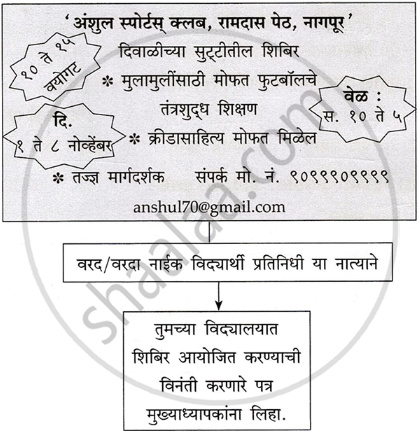 ‘अंशुल स्पोर्टस् क्लब, रामदास पेठ, नागपूर’
दिवाळीच्या सुट्टीतील शिबिर
१० ते १५
वयोगट
* मुलामुलींसाठी मोफत फुटबॉलचे
तंत्रशुद्ध शिक्षण
वेळ :
स. १० ते ५
दि.
१ ते ८ नोव्हेंबर
* क्रीडासाहित्य मोफत मिळेल
* तज्ज्ञ मार्गदर्शक संपर्क मो. नं. ९०९९९०९९९९
anshul70@gmail.com
वरद/वरदा नाईक विद्यार्थी प्रतिनिधी या नात्याने
तुमच्या विद्यालयात
शिबिर आयोजित करण्याची
विनंती करणारे पत्र
मुख्याध्यापकांना लिहा.
shaalaa.com